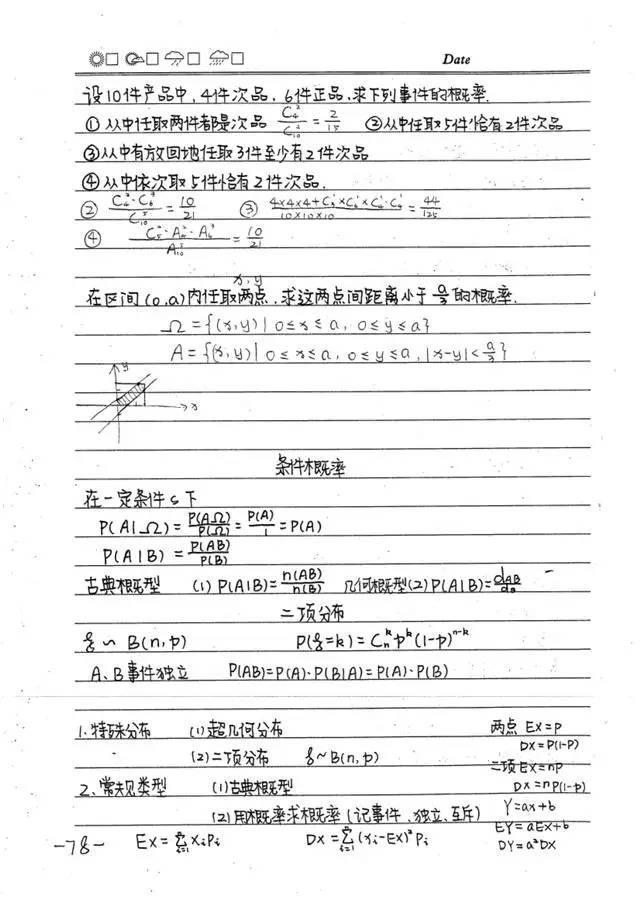 Date
设10件产品中,4件次品,6件正品,求下列事件的概率.
① 从中任取两件都是次品 C₄²/C₁₀² = 2/15 ②从中任取5件恰有2件次品
③从中有放回地任取3件至少有2件次品
④从中依次取5件恰有2件次品.
② C₄²·C₆³/C₁₀⁵ = 10/21 ③ = 44/125
④ = 10/21
x,y
在区间(0,a)内任取两点,求这两点间距离小于 的概率.
Ω={(x,y)|0≤x≤a,0≤y≤a}
A={(x,y)|0≤x≤a,0≤y≤a,|x-y|< }
y
x
条件概率
在一定条件S下
P(A|Ω)=P(AΩ)/P(Ω)=P(A)/1=P(A)
P(A|B)=P(AB)/P(B)
古典概型 (1) P(A|B)=n(AB)/n(B) 几何概型(2) P(A|B)=
二项分布
ξ~B(n,p) P(ξ=k)=Cₙᵏpᵏ(1-p)ⁿ⁻ᵏ
A、B事件独立 P(AB)=P(A)·P(B|A)=P(A)·P(B)
1.特殊分布 (1)超几何分布 两点 EX=p
DX=P(1-P)
(2)二项分布 ξ~B(n,p) 二项EX=np
2、常规类型 (1)古典概型 DX=nP(1-p)
(2)用概率求概率(记事件、独立、互斥) Y=ax+b
EY=aEX+b
-78- EX=∑ᵢ₌₁ⁿXᵢPᵢ DX=∑ᵢ₌₁ⁿ(xᵢ-EX)²Pᵢ DY=a²DX